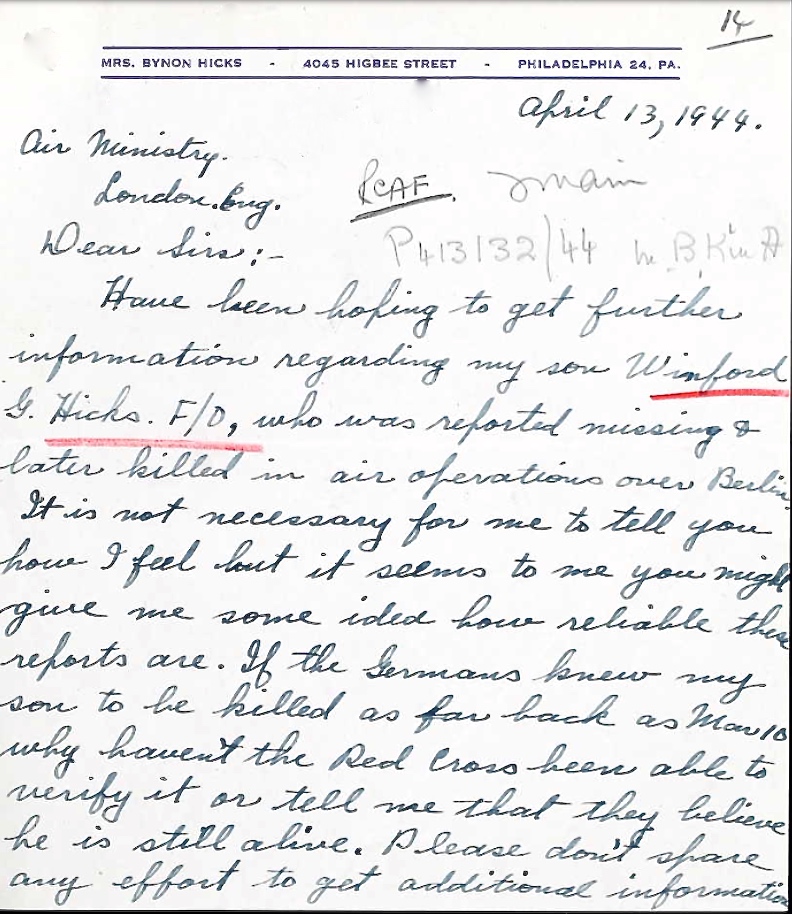 14
MRS. BYNON HICKS - 4045 HIGBEE STREET - PHILADELPHIA 24, PA.
April 13, 1944.
Air Ministry.
London. Eng.
RCAF.
P413132/44
Dear Sirs:-
Have been hoping to get further
information regarding my son Winford
G. Hicks. F/O, who was reported missing &
later killed in air operations over Berlin.
It is not necessary for me to tell you
how I feel but it seems to me you might
give me some idea how reliable these
reports are. If the Germans knew my
son to be killed as far back as Mar 10
why haven't the Red Cross been able to
verify it or tell me that they believe
he is still alive. Please don't spare
any effort to get additional information